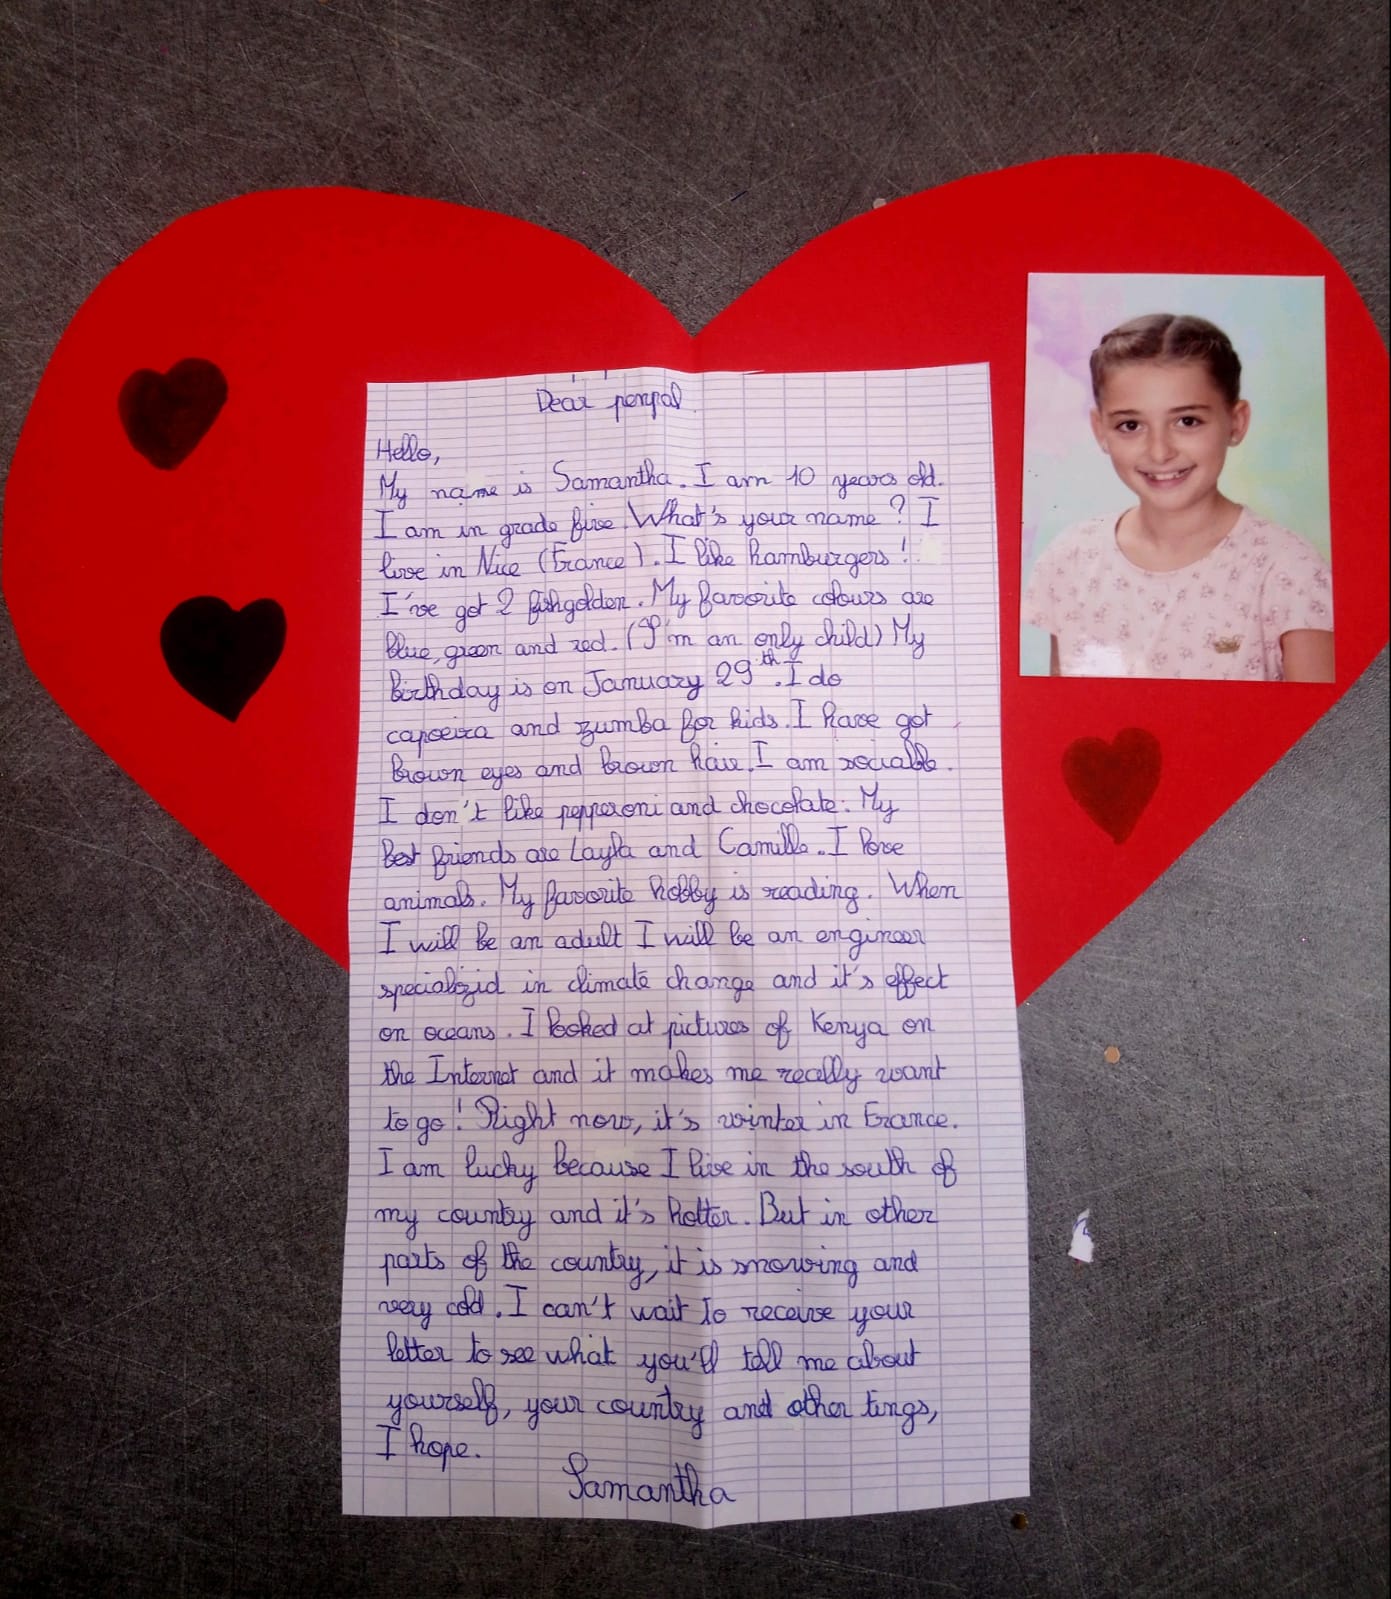 Dear penpal.
Hello,
My name is Samantha. I am 10 years old.
I am in grade five. What's your name? I
live in Nice (France). I like hamburgers!
I've got 2 fishgolden. My favorite colours are
blue, green and red. (I'm an only child) My
birthday is on January 29th. I do
capoeira and zumba for kids. I have got
brown eyes and brown hair. I am sociable.
I don't like pepperoni and chocolate. My
best friends are Layla and Camille. I love
animals. My favorite hobby is reading. When
I will be an adult I will be an engineer
specializid in climate change and it's effect
on oceans. I looked at pictures of Kenya on
the Internet and it makes me really want
to go! Right now, it's winter in France.
I am lucky because I live in the south of
my country and it's hotter. But in other
parts of the country, it is snowing and
very cold. I can't wait to receive your
letter to see what you'll tell me about
yourself, your country and other tings,
I hope.
Samantha